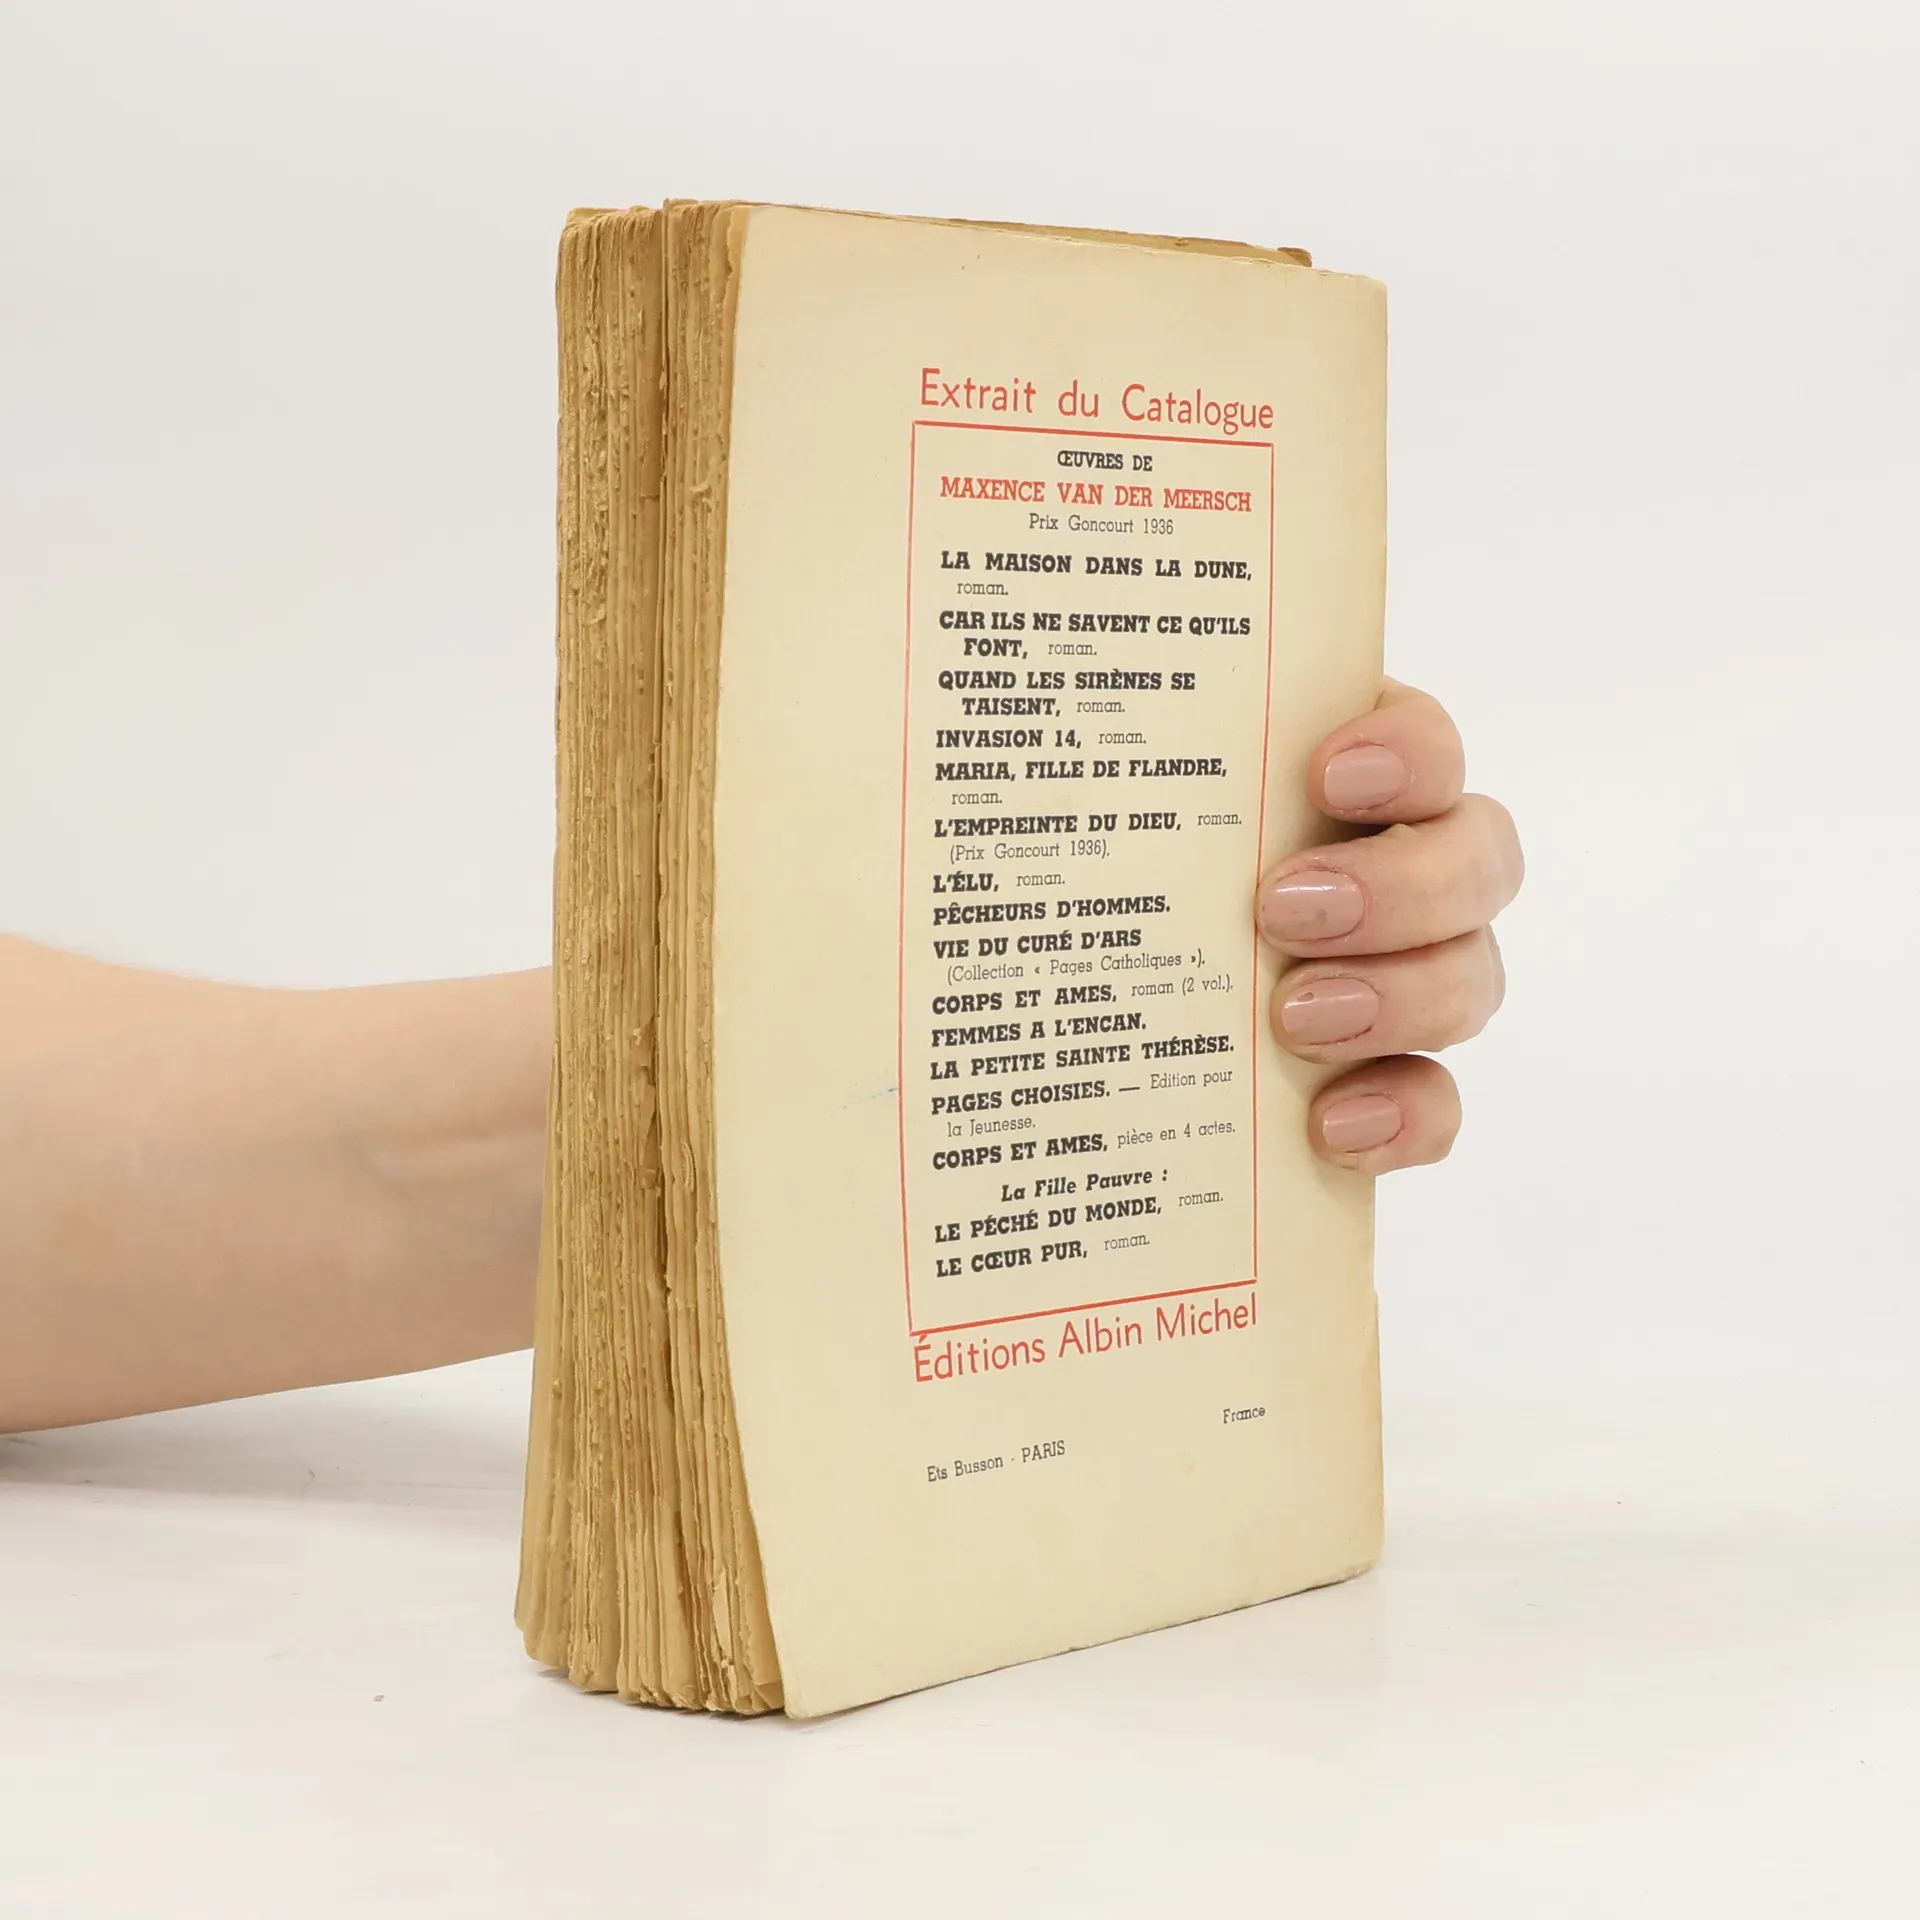 Extrait du Catalogue
ŒUVRES DE
MAXENCE VAN DER MEERSCH
Prix Goncourt 1936
LA MAISON DANS LA DUNE,
roman.
CAR ILS NE SAVENT CE QU'ILS
FONT, roman.
QUAND LES SIRÈNES SE
TAISENT, roman.
INVASION 14, roman.
MARIA, FILLE DE FLANDRE,
roman.
L'EMPREINTE DU DIEU, roman.
(Prix Goncourt 1936).
L'ÉLU, roman.
PÊCHEURS D'HOMMES.
VIE DU CURÉ D'ARS
(Collection « Pages Catholiques »).
CORPS ET AMES, roman (2 vol.).
FEMMES A L'ENCAN.
LA PETITE SAINTE THÉRÈSE.
PAGES CHOISIES. — Edition pour
la Jeunesse.
CORPS ET AMES, pièce en 4 actes.
La Fille Pauvre :
LE PÉCHÉ DU MONDE, roman.
LE CŒUR PUR, roman.
Éditions Albin Michel
France
Ets Busson - PARIS